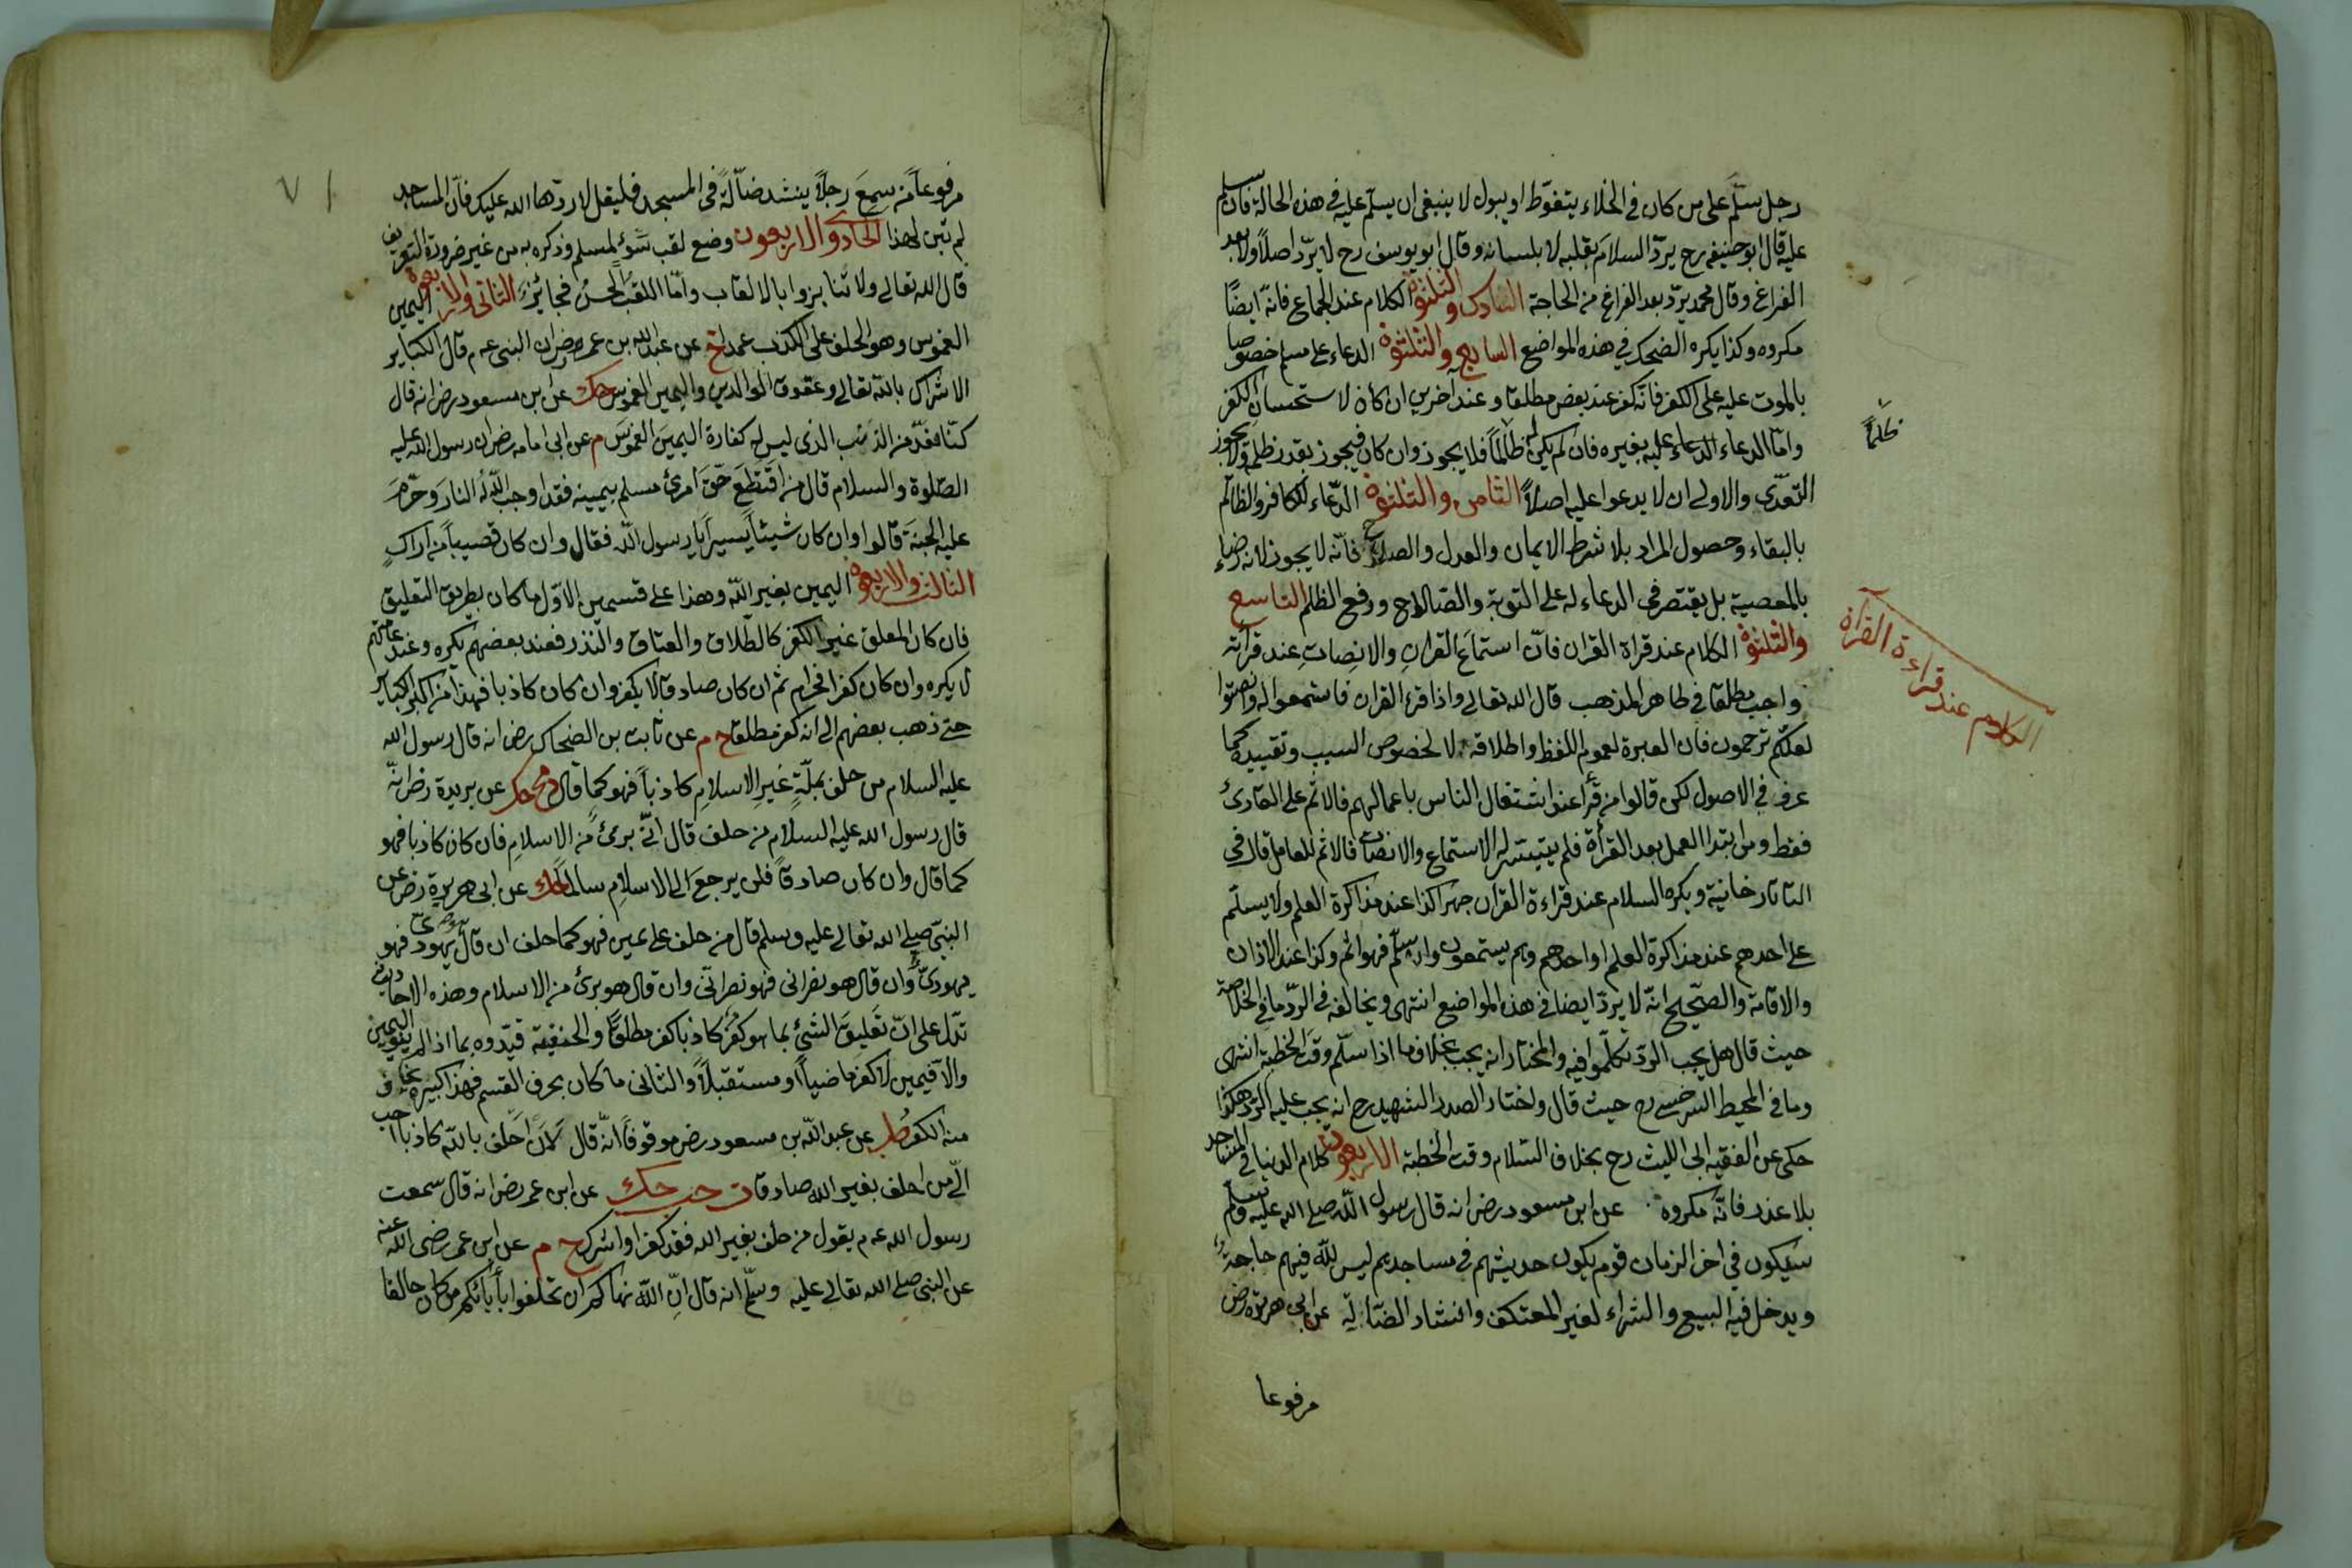 رجل سلّم على من كان في الخلاء يتغوّط او يبول لا ينبغي ان يسلّم عليه في هذه الحالة فان سلم
عليه قال ابو حنيفه رح يردّ السلامَ بقلبه لا بلسانه وقال ابو يوسف رح لا يردّ اصلاً ولا بعد
الفراغ وقال محمد يردّ بعد الفراغ من الحاجة السادس والثلثون الكلام عند الجماع فانّه ايضًا
مكروه وكذا يكره الضحك في هذه المواضع السابع والثلثون الدعاء على مسلم خصوصا
بالموت عليه على الكفر فانّه كفر عند بعض مطلقا وعند آخرين ان كان لاستحسان الكفر
وامّا الدعاء الدعاء عليه بغيره فان لم يكن له ظالماً فلا يجوز وان كان فيجوز بقدر ظلمه ولا يجوز
ظلماً
التعدّى والاولى ان لا يدعوا عليه اصلاً الثامن والثلثون الدّعاء للكافر والظالم
بالبقاء وحصول المراد بلا شرط الايمان والعدل والصلاح فانّه لا يجوز لانه رضاء
بالمعصية بل يقتصر في الدعاء له على التوبة والصّلاح ودفع الظلم التاسع
والثلثون الكلام عند قراة القران فانّ استماعَ القرانِ والانصاتِ عند قرأته
الكلام عند قراءة القرأن
واجب مطلقا في ظاهر المذهب قال الله تعالى واذا قرء القران فاستمعوا له وانصتوا
لعلكم ترحمون فان العبرة لعموم اللفظ واطلاقه لا لخصوص السبب وتقييده كما
عرف في الاصول لكن قالوا من قرأ عند اشتغال الناس باعمالهم فالاثم على القارئ
فقط ومن ابتدا العمل بعد القرأة فلم يتيسّر له الاستماع والانصات فالاثم للعامل قال في
التاتارخانية ويكره السلام عند قراءة القران جهرا كذا عند مذاكرة العلم ولا يسلّم
على احدهم عند مذاكرة العلم او احدهم وهم يستمعون وان سلّم فهو اثم وكذا عند الاذان
والاقامة والصّحيح انّه لا يردّ ايضا في هذه المواضع انتهى ويخالفه في الردّ ما في الخلاصة
حيث قال هل يجب الردّ تكلّموا فيه والمختار انه يجب بخلاف ما اذا سلّم وقت الخطبة انتهى
وما في المحيط السرخسى رح حيث قال واختار الصدر الشهيد رح انه يجب عليه الرّد هكذا
حكى عن الفقيه ابى الليث رح بخلاف السّلام وقت الخطبة الاربعون كلام الدنيا في المساجد
بلا عذر فانّه مكروه عن ابن مسعود رض انه قال رسول اللّه صلى الله عليه وسلم
سيكون في اخر الزمان قوم يكون حديثهم في مساجدهم ليس للّه فيهم حاجةٌ
ويدخل فيه البيع والشراء لغير المعتكف وانشاد الضّالّة عن ابى هريرة رض
مرفوعا
٧١
مرفوعاً من سمِعَ رجلاً ينشد ضالّةً في المسجد فليقل لا ردّها الله عليك فانّ المساجد
لم تبن لهذا الحادى والاربعون وضع لقب سُوءٍ لمسلم وذكره به من غير ضرورة التعريف
قال الله تعالى ولا تنابزوا بالالقاب وامّا اللقب الحسن فجائز الثانى والاربعون اليمين
الغموس وهو الحلف على الكذب عمدا خ عن عبد الله بن عمرو رض ان النبى عم قال الكبائر
الاشراك باللّه تعالى وعقوق الوالدين واليمين الغموس حك عن ابن مسعود رض انه قال
كنّا نعُدّ من الذنب الذى ليس له كفارة اليمينَ الغموسَ م عن ابى امامه رض ان رسول الله عليه
الصّلوة والسلام قال من اقتطَعَ حقّ امرئ مسلم بيمينه فقد اوجب اللّه لُه النارَ وحرّمَ
عليه الجنة قالوا وان كان شيئاً يسيراً يا رسول اللّه فقال وان كان قضيباً من اراكٍ
الثالث والاربعون اليمين بغير اللّه وهذا على قسمين الاوّل ما كان بطريق التعليق
فان كان المعلق غير الكفر كالطّلاق والعتاق والنذر فعند بعضهم يكره وعند عامّتهم
لا يكره وان كان كفرا فحرام ثم ان كان صادقا لا يكفر وان كان كاذبا فهذا من اكبر الكبائر
حتى ذهب بعضهم الى انه كفر مطلقا خ م عن ثابت بن الضحاك رض انه قال رسول الله
عليه السلام من حلف بملّةٍ غيرِ الاسلامِ كاذباً فهو كما قال حك عن بريدة رض انّه
قال رسول الله عليه السلام من حلف قال انّى برئٌ من الاسلامِ فان كان كاذبا فهو
كما قال وان كان صادقاً فلن يرجعَ الى الاسلامِ سالماً حك عن ابى هريرة رض عن
النبىّ صلى الله تعالى عليه وسلم قال من حلف على يمين فهو كما حلف ان قال هو يهودىّ فهو
يهودىّ وان قال هو نصرانى فهو نصرانّى وان قال هو برئ من الاسلام وهذه الاحاديث
تدّل على انّ تعليقَ الشئِ بما هو كفرٌ كاذبا كفر مطلقاً والحنفيّة قيّدوه بما اذا لم ينو اليمين
والاّ فيمين لا كفر ماضياً او مستقبلاً والثانى ما كان بحرف القسم فهذا كبيرة يخاف
منه الكفر طب عن عبد اللّه بن مسعود رض موقوفاً انّه قال لَاَن احلف باللّه كاذبا احب
الىّ من احلف بغير الله صادقا ت حب حك عن ابن عمر رض انه قال سمعت
رسول الله عم يقول من حلف بغير الله فقد كفر او اشرك خ م عن ابن عمر رضى اللّه عنه
عن النبى صلى الله تعالى عليه وسلّم انه قال انّ اللّه نهاكم ان تحلفوا بأبائكم من كان حالفا